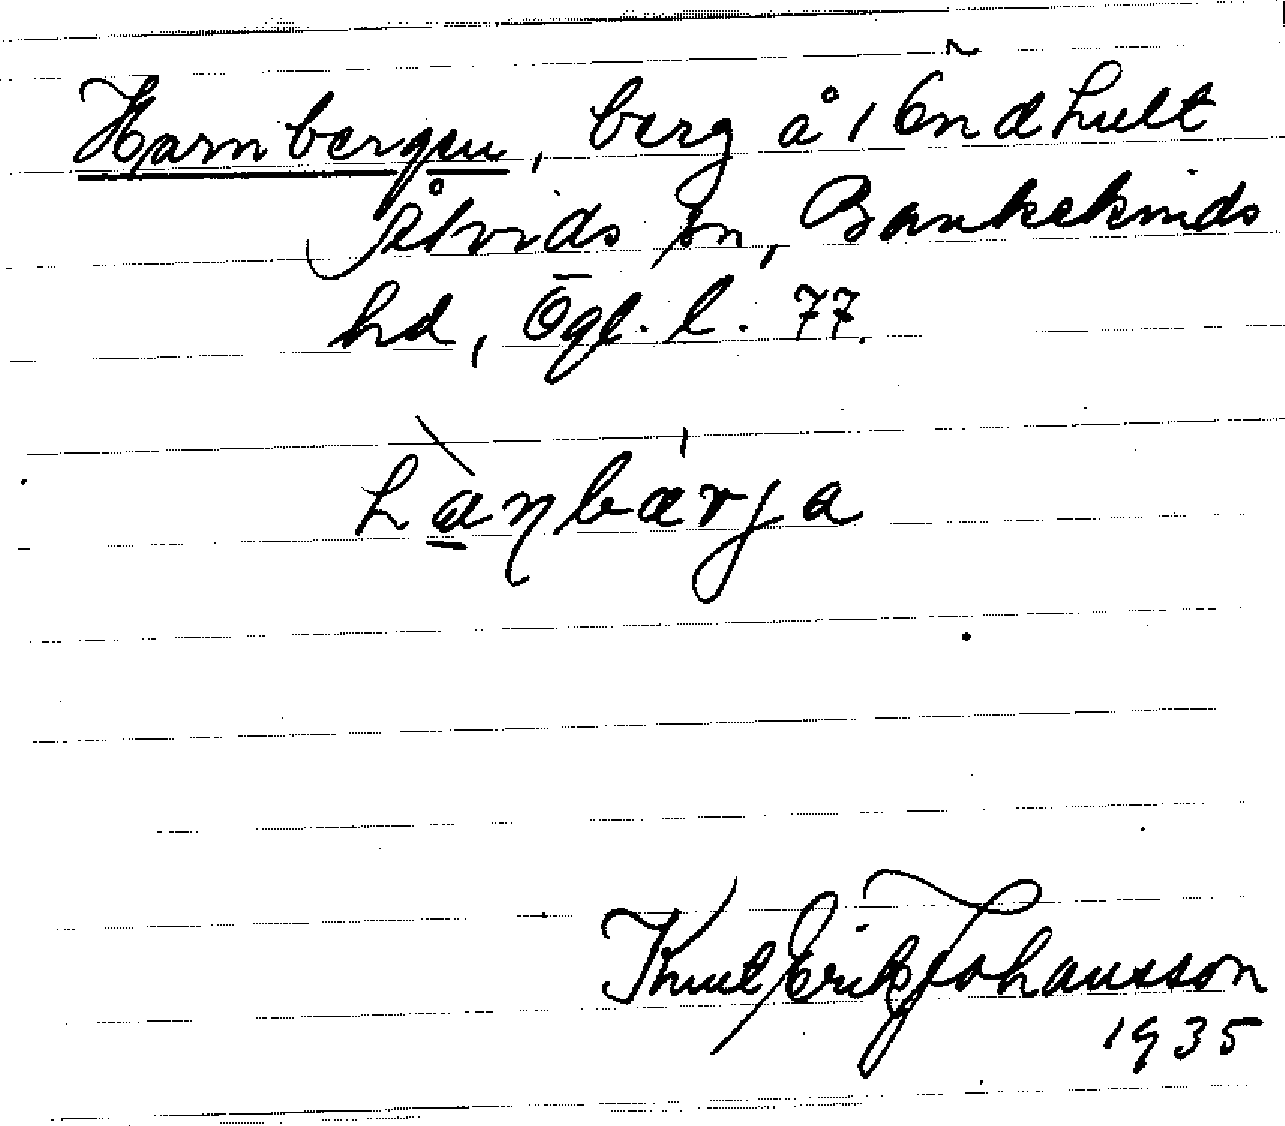 Harnbergen, berg å 1 Öndhult
Åtvids sn, Bankekinds
hd, Ögl. l. 77.
hanbærja
Knut Erik Johansson
1935